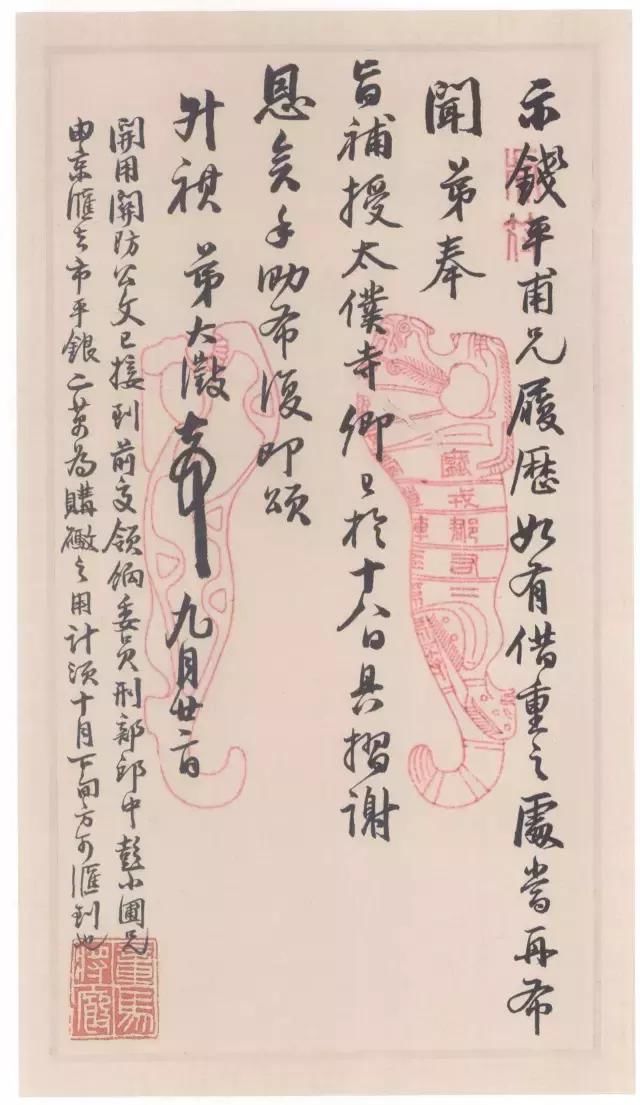 示錢平甫兄履歷如有借重之處當再布
聞弟奉
旨補授太僕寺卿已於十八日具摺謝
恩矣手助布復即頌
升祺 弟大澂 九月廿二日
開用關防公文已接到前文領餉委員刑部郎中彭小圃兄
由京匯去市平銀二萬為購礮之用計須十月下旬方可匯到也